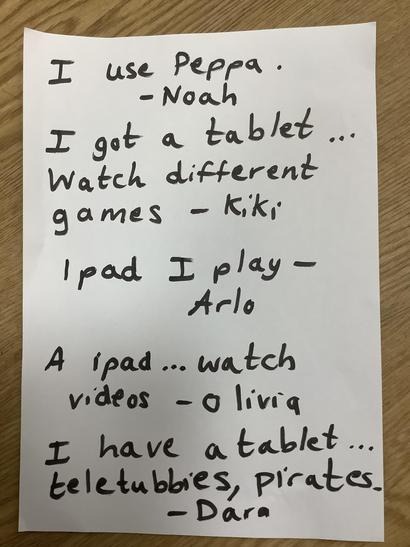 I use Peppa.
- Noah
I got a tablet ...
Watch different
games - Kiki
Ipad I play -
Arlo
A ipad ... watch
videos - Olivia
I have a tablet ...
teletubbies, pirates.
- Dara